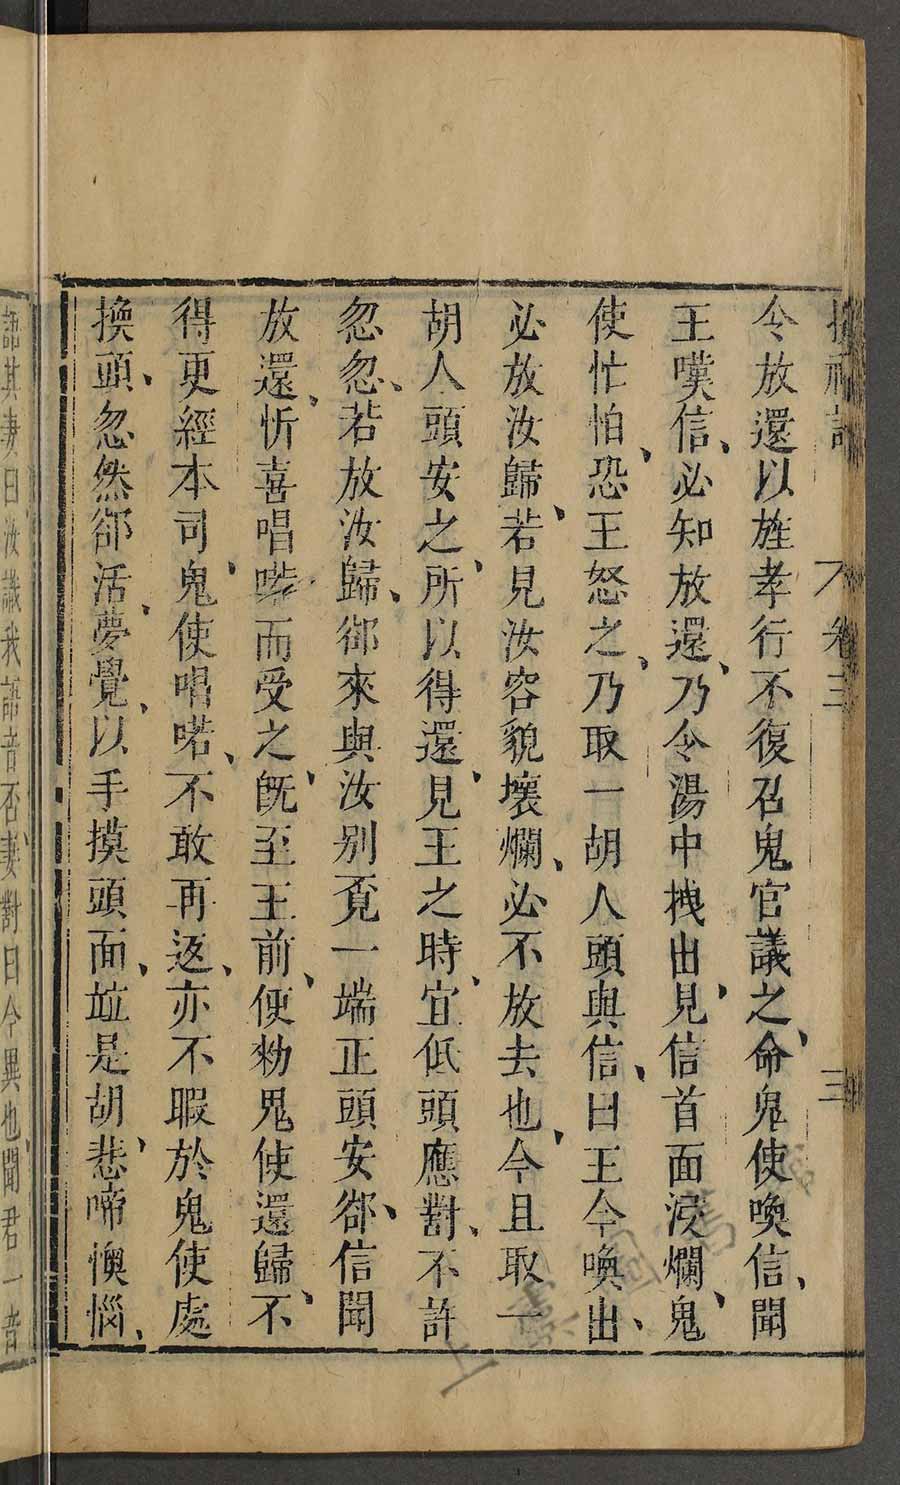 搜神記 卷三 三
令放還以旌孝行不復召鬼官議之命鬼使喚信聞
王嘆信必知放還乃令湯中拽出見信首面浸爛鬼
使忙怕恐王怒之乃取一胡人頭與信曰王今喚出
必放汝歸若見汝容貌壞爛必不放去也今且取一
胡人頭安之所以得還見王之時宜低頭應對不許
忽忽若放汝歸卻來與汝别覓一端正頭安卻信聞
放還忻喜唱喏而受之既至王前便勑鬼使還歸不
得更經本司鬼使唱喏不敢再返亦不暇於鬼使處
換頭忽然卻活夢覺以手摸頭面竝是胡悲啼懊惱
語其妻曰汝識我語音否妻對曰今異也聞君一音